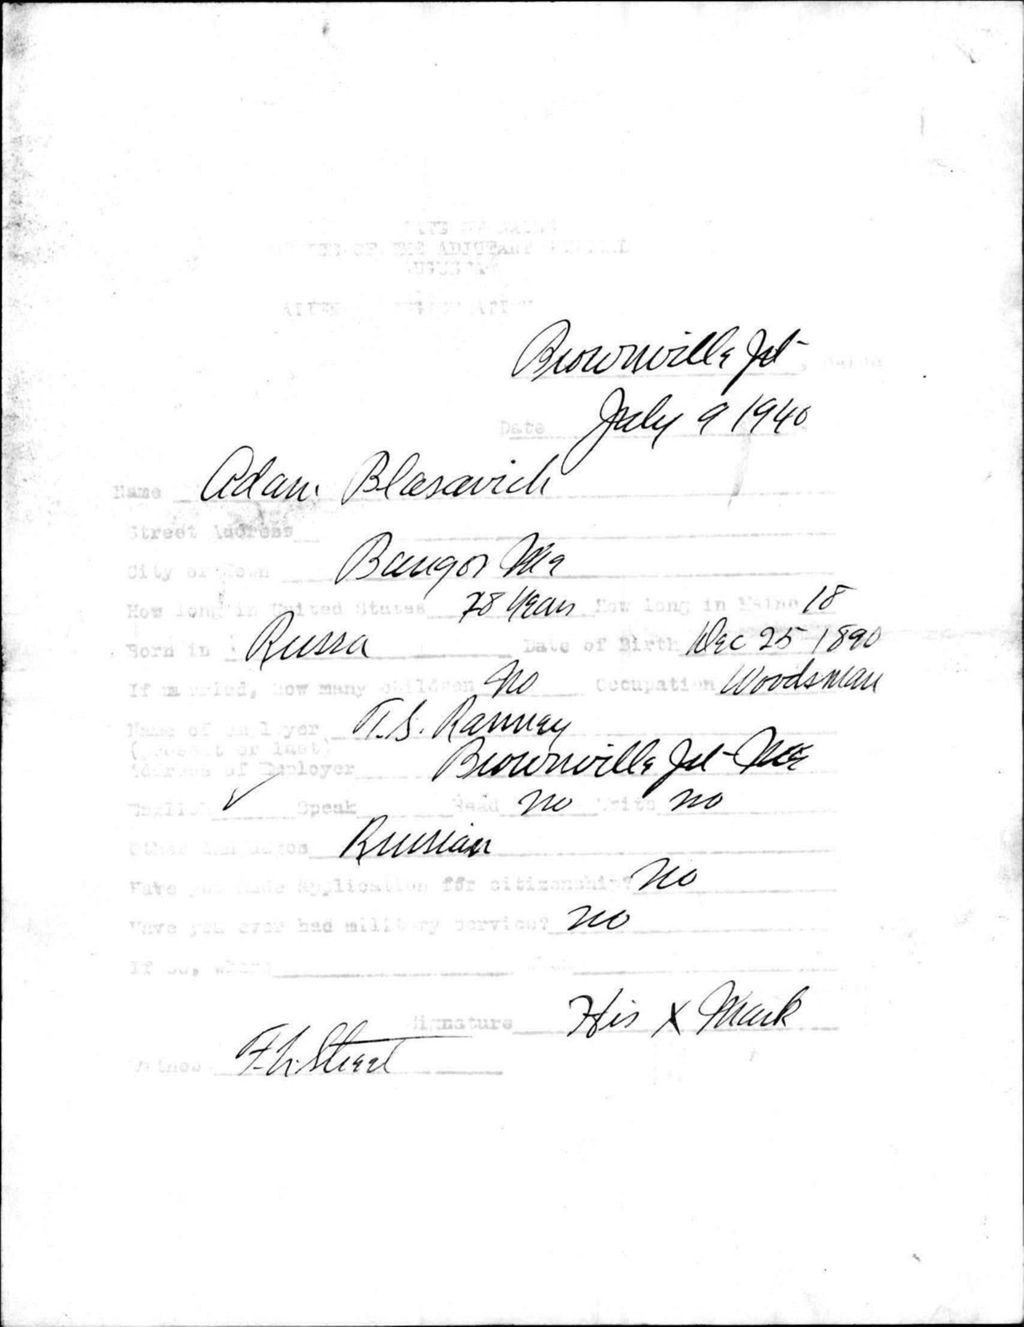 STATE OF MAINE
OFFICE OF THE ADJUTANT GENERAL
AUGUSTA
ALIEN REGISTRATION
Brownville Jct, Maine
Date July 9 1940
Name Adam Blasavich
Street Address
City or Town Bangor Me
How long in United States 28 years How long in Maine 18
Born in Russa Date of Birth Dec 25 1890
If married, how many children no Occupation Woodsman
Name of employer T.S. Ranney
(present or last)
Address of Employer Brownville Jct Me
English ✓ Speak Read no Write no
Other languages Russian
Have you made application for citizenship? No
Have you ever had military service? no
If so, where when
Signature His X Mark
Witness